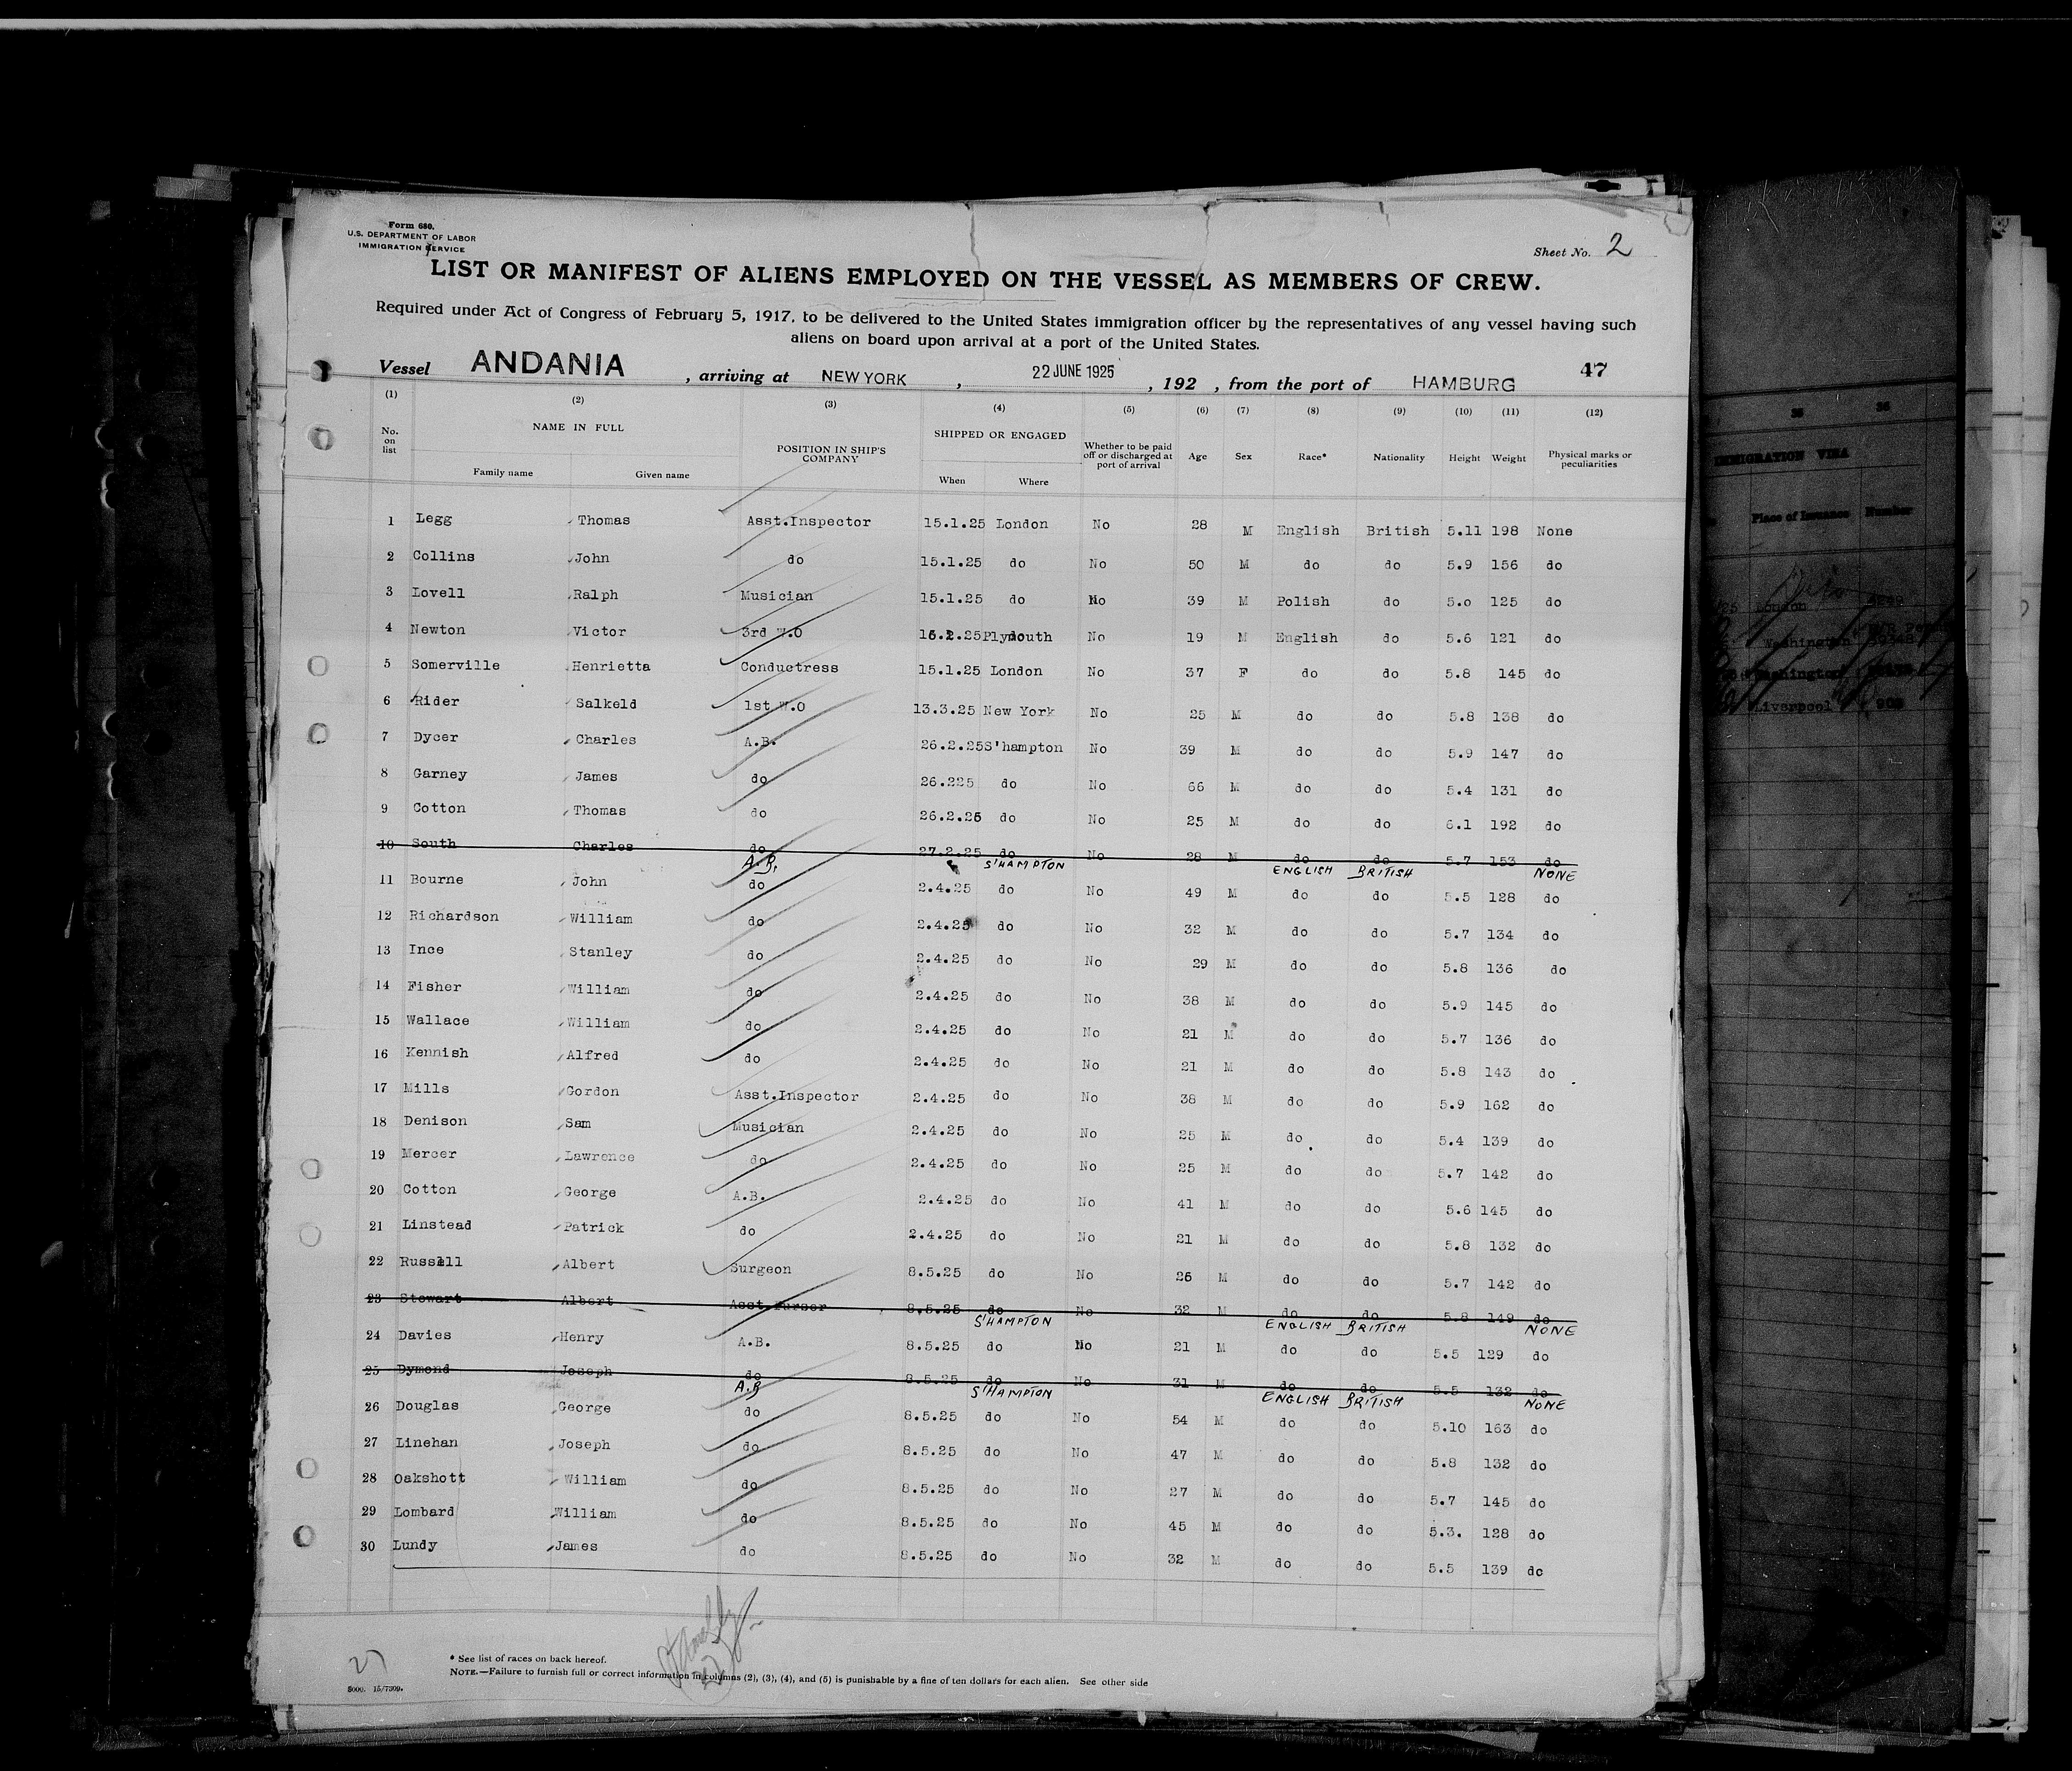 Form 680.
U.S. DEPARTMENT OF LABOR
IMMIGRATION SERVICE
Sheet No. 2
LIST OR MANIFEST OF ALIENS EMPLOYED ON THE VESSEL AS MEMBERS OF CREW.
Required under Act of Congress of February 5, 1917, to be delivered to the United States immigration officer by the representatives of any vessel having such
aliens on board upon arrival at a port of the United States.
47
Vessel ANDANIA , arriving at NEW YORK , 22 JUNE 1925 , 192 , from the port of HAMBURG
(1) (2) (3) (4) (5) (6) (7) (8) (9) (10) (11) (12)
No. on list NAME IN FULL POSITION IN SHIP'S COMPANY SHIPPED OR ENGAGED Whether to be paid off or discharged at port of arrival Age Sex Race* Nationality Height Weight Physical marks or peculiarities
Family name Given name When Where
1 Legg Thomas Asst.Inspector 15.1.25 London No 28 M English British 5.11 198 None
2 Collins John do 15.1.25 do No 50 M do do 5.9 156 do
3 Lovell Ralph Musician 15.1.25 do No 39 M Polish do 5.0 125 do
4 Newton Victor 3rd W.O Plymouth No 19 M English do 5.6 121 do
5 Somerville Henrietta Conductress 15.1.25 London No 37 F do do 5.8 145 do
6 Rider Salkeld 1st W.O 13.3.25 New York No 25 M do do 5.8 138 do
7 Dycer Charles A.B. 26.2.25 S'hampton No 39 M do do 5.9 147 do
8 Garney James do 26.225 do No 66 M do do 5.4 131 do
9 Cotton Thomas do 26.2.25 do No 25 M do do 6.1 192 do
10 South Charles do 27.2.25 do No 28 M do do 5.7 153 do
A.B. S'HAMPTON ENGLISH BRITISH NONE
11 Bourne John do 2.4.25 do No 49 M do do 5.5 128 do
12 Richardson William do 2.4.25 do No 32 M do do 5.7 134 do
13 Ince Stanley do 2.4.25 do No 29 M do do 5.8 136 do
14 Fisher William do 2.4.25 do No 38 M do do 5.9 145 do
15 Wallace William do 2.4.25 do No 21 M do do 5.7 136 do
16 Kennish Alfred do 2.4.25 do No 21 M do do 5.8 143 do
17 Mills Gordon Asst.Inspector 2.4.25 do No 38 M do do 5.9 162 do
18 Denison Sam Musician 2.4.25 do No 25 M do do 5.4 139 do
19 Mercer Lawrence do 2.4.25 do No 25 M do do 5.7 142 do
20 Cotton George A.B. 2.4.25 do No 41 M do do 5.6 145 do
21 Linstead Patrick do 2.4.25 do No 21 M do do 5.8 132 do
22 Russell Albert Surgeon 8.5.25 do No 26 M do do 5.7 142 do
23 Stewart Albert Asst.Purser 8.5.25 do No 32 M do do 5.8 149 do
S'HAMPTON ENGLISH BRITISH NONE
24 Davies Henry A.B. 8.5.25 do No 21 M do do 5.5 129 do
25 Dymond Joseph do 8.5.25 do No 31 M do do 5.5 132 do
A.B S'HAMPTON ENGLISH BRITISH NONE
26 Douglas George do 8.5.25 do No 54 M do do 5.10 163 do
27 Linehan Joseph do 8.5.25 do No 47 M do do 5.8 132 do
28 Oakshott William do 8.5.25 do No 27 M do do 5.7 145 do
29 Lombard William do 8.5.25 do No 45 M do do 5.3. 128 do
30 Lundy James do 8.5.25 do No 32 M do do 5.5 139 do
27
* See list of races on back hereof.
NOTE.—Failure to furnish full or correct information in columns (2), (3), (4), and (5) is punishable by a fine of ten dollars for each alien. See other side
5000. 15/7309.
IMMIGRATION VISA
Place of Issuance Number
London
Washington
Washington
Liverpool